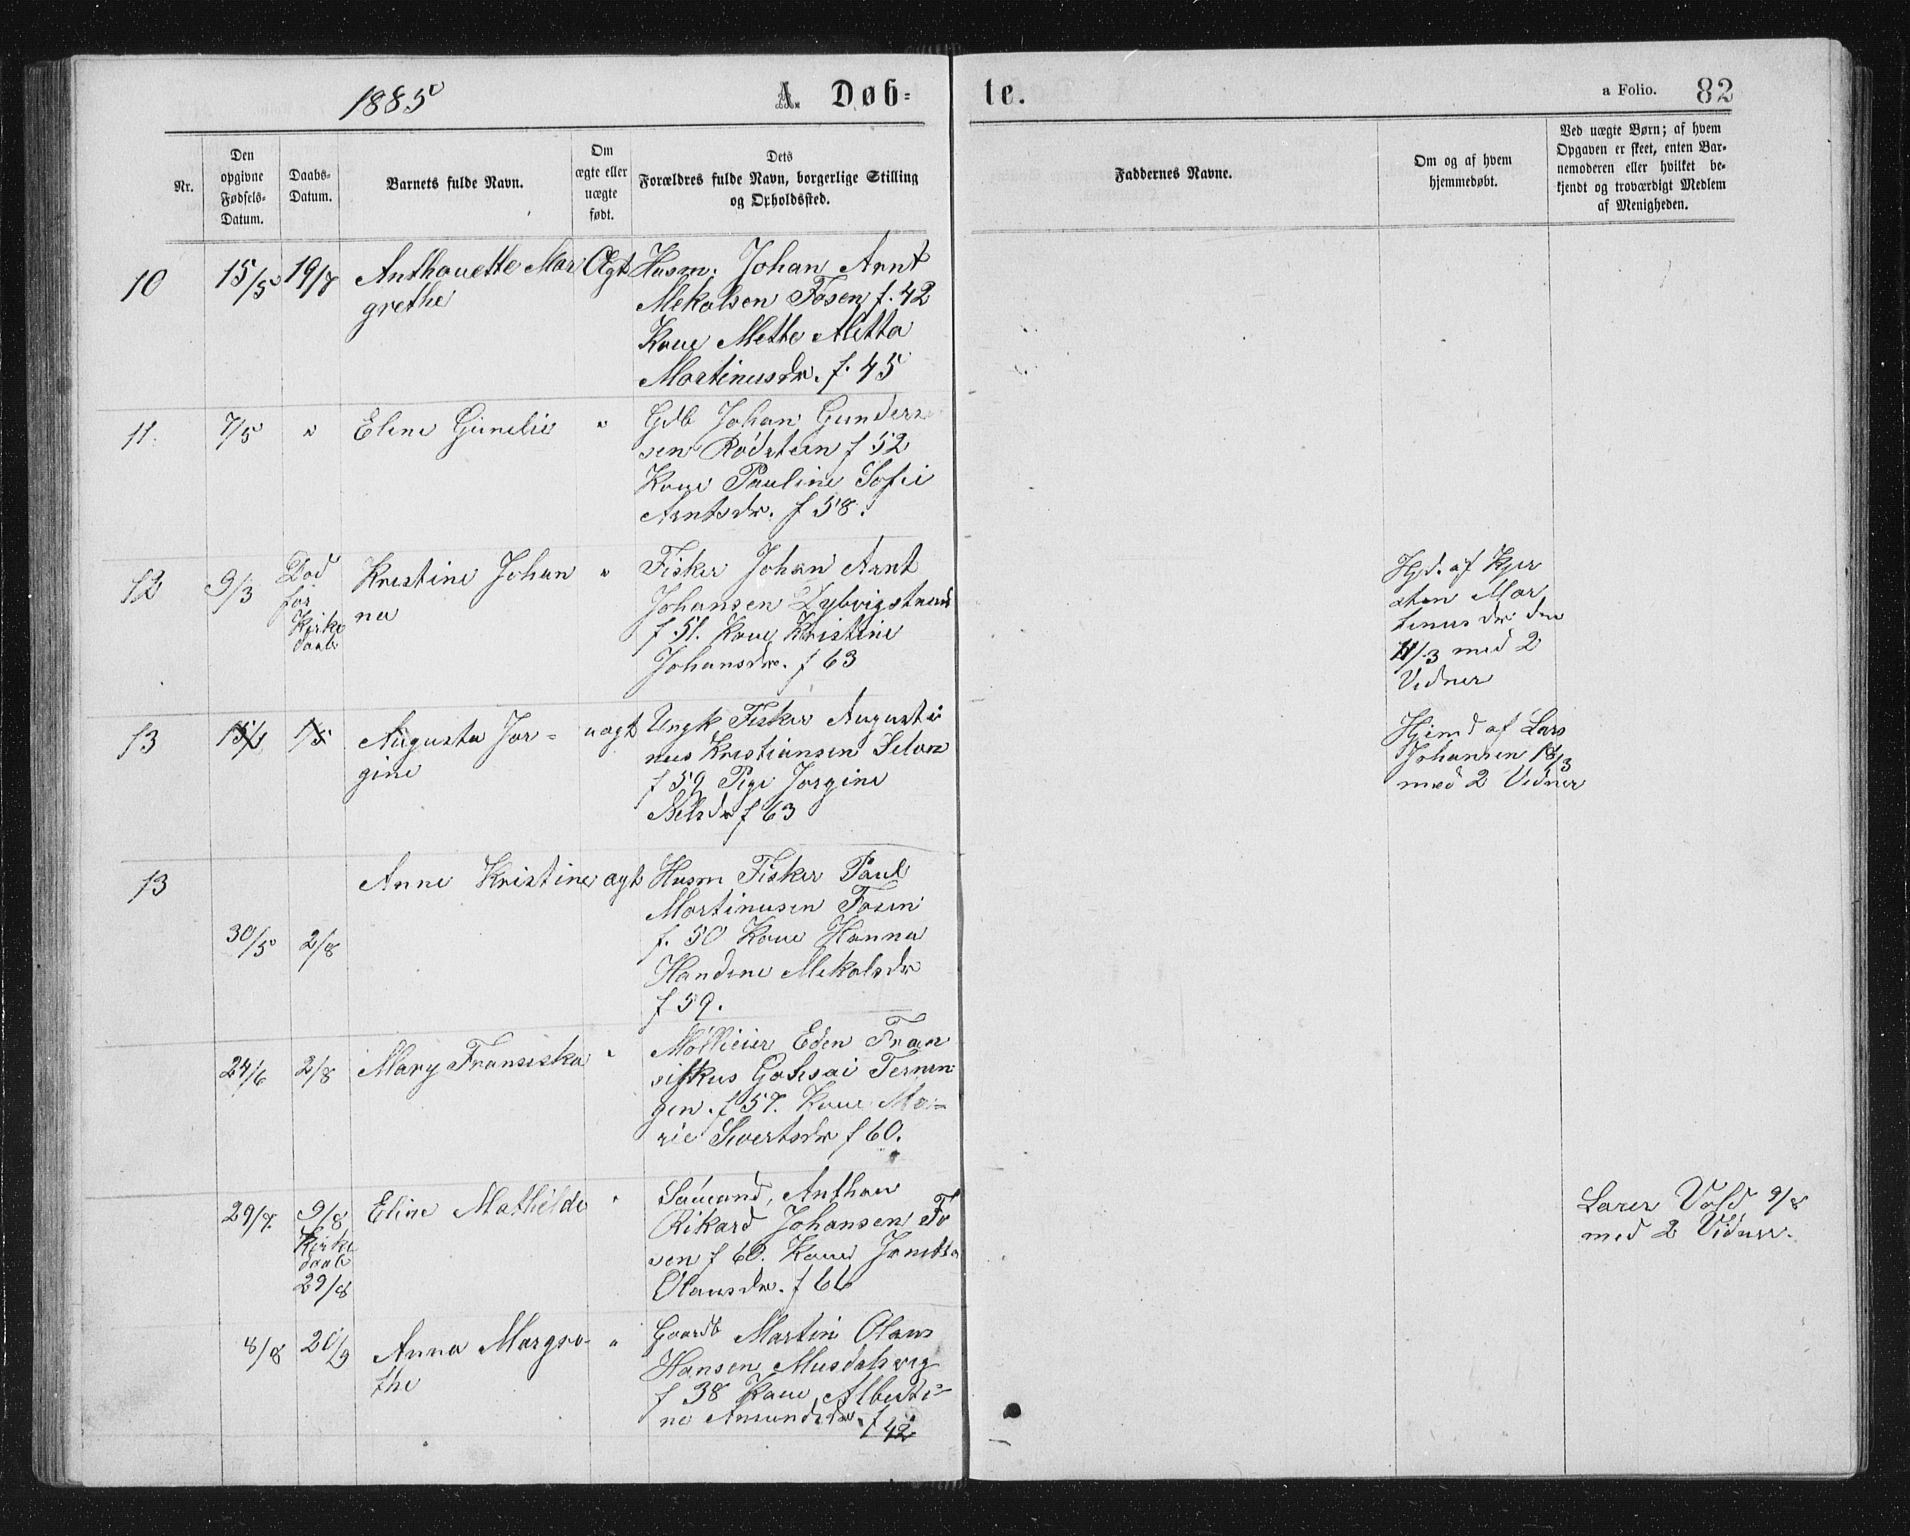 1885
A. Døb-
te.
a Folio. 82
Nr.
Den
opgivne
Fødsels-
Datum.
Daabs-
Datum.
Barnets fulde Navn.
Om
ægte eller
uægte
født.
Dets
Forældres fulde Navn, borgerlige Stilling
og Opholdssted.
Faddernes Navne.
Om og af hvem
hjemmedøbt.
Ved uægte Børn; af hvem
Opgaven er skeet, enten Bar-
nemoderen eller hvilket be-
kjendt og troværdigt Medlem
af Menigheden.
10 15/5 19/7 Anthonette Mar Ægt Husm. Johan Arnt
grethe Mekalsen Fosen f. 42
Kone Mette Alitta
Martinusdr. f. 45
11. 7/5 " Eline Gunelie " Gdb Johan Gunder
sen Rødstein f 52
Kone Pauline Sofie
Arntsdr. f 58.
12 9/3 Død Kristine Johan " Fisker Johan Arnt
før na Johansen Dybvigstrand
Kirke f 51. Kone Kristine
daab Johansdr. f 63
Hjd. af Kjer
sten Mar
tinus dr den
11/3 med 2
Vidner
13 15/1 1/5 Augusta Jor- uagt Ungk Fisker Augusti
gine nus Kristiansen
f 59 Pige Jorgine
Nelsdr f 63
Hjemd af Lars
Johansen 18/3
med 2 Vidner
13 Anne Kristine agt Husm Fisker Paul
Martinusen Fosen
30/5 2/8 f. 50 Kone Hanna
Handine Mekalsdr
f 59.
24/6 2/8 Mary Fransiska " Eden Fran
siskus Ternin
gen. f 57. Kone Ma-
rie Sivertsdr f 60.
29/7. 9/8 Eline Mathilde " Anthon
Kirke Rikard Johansen Fo
daab sen f 60. Kone
29/8 Olausdr. f 66
Larer Vold 9/8
med 2 Vidner.
8/8 20/9 Anna Margre- " Gaardb Martin Olaus
the Hansen Musdalsvig
f 38 Kone Alberti-
ne Amundsdr. f 42